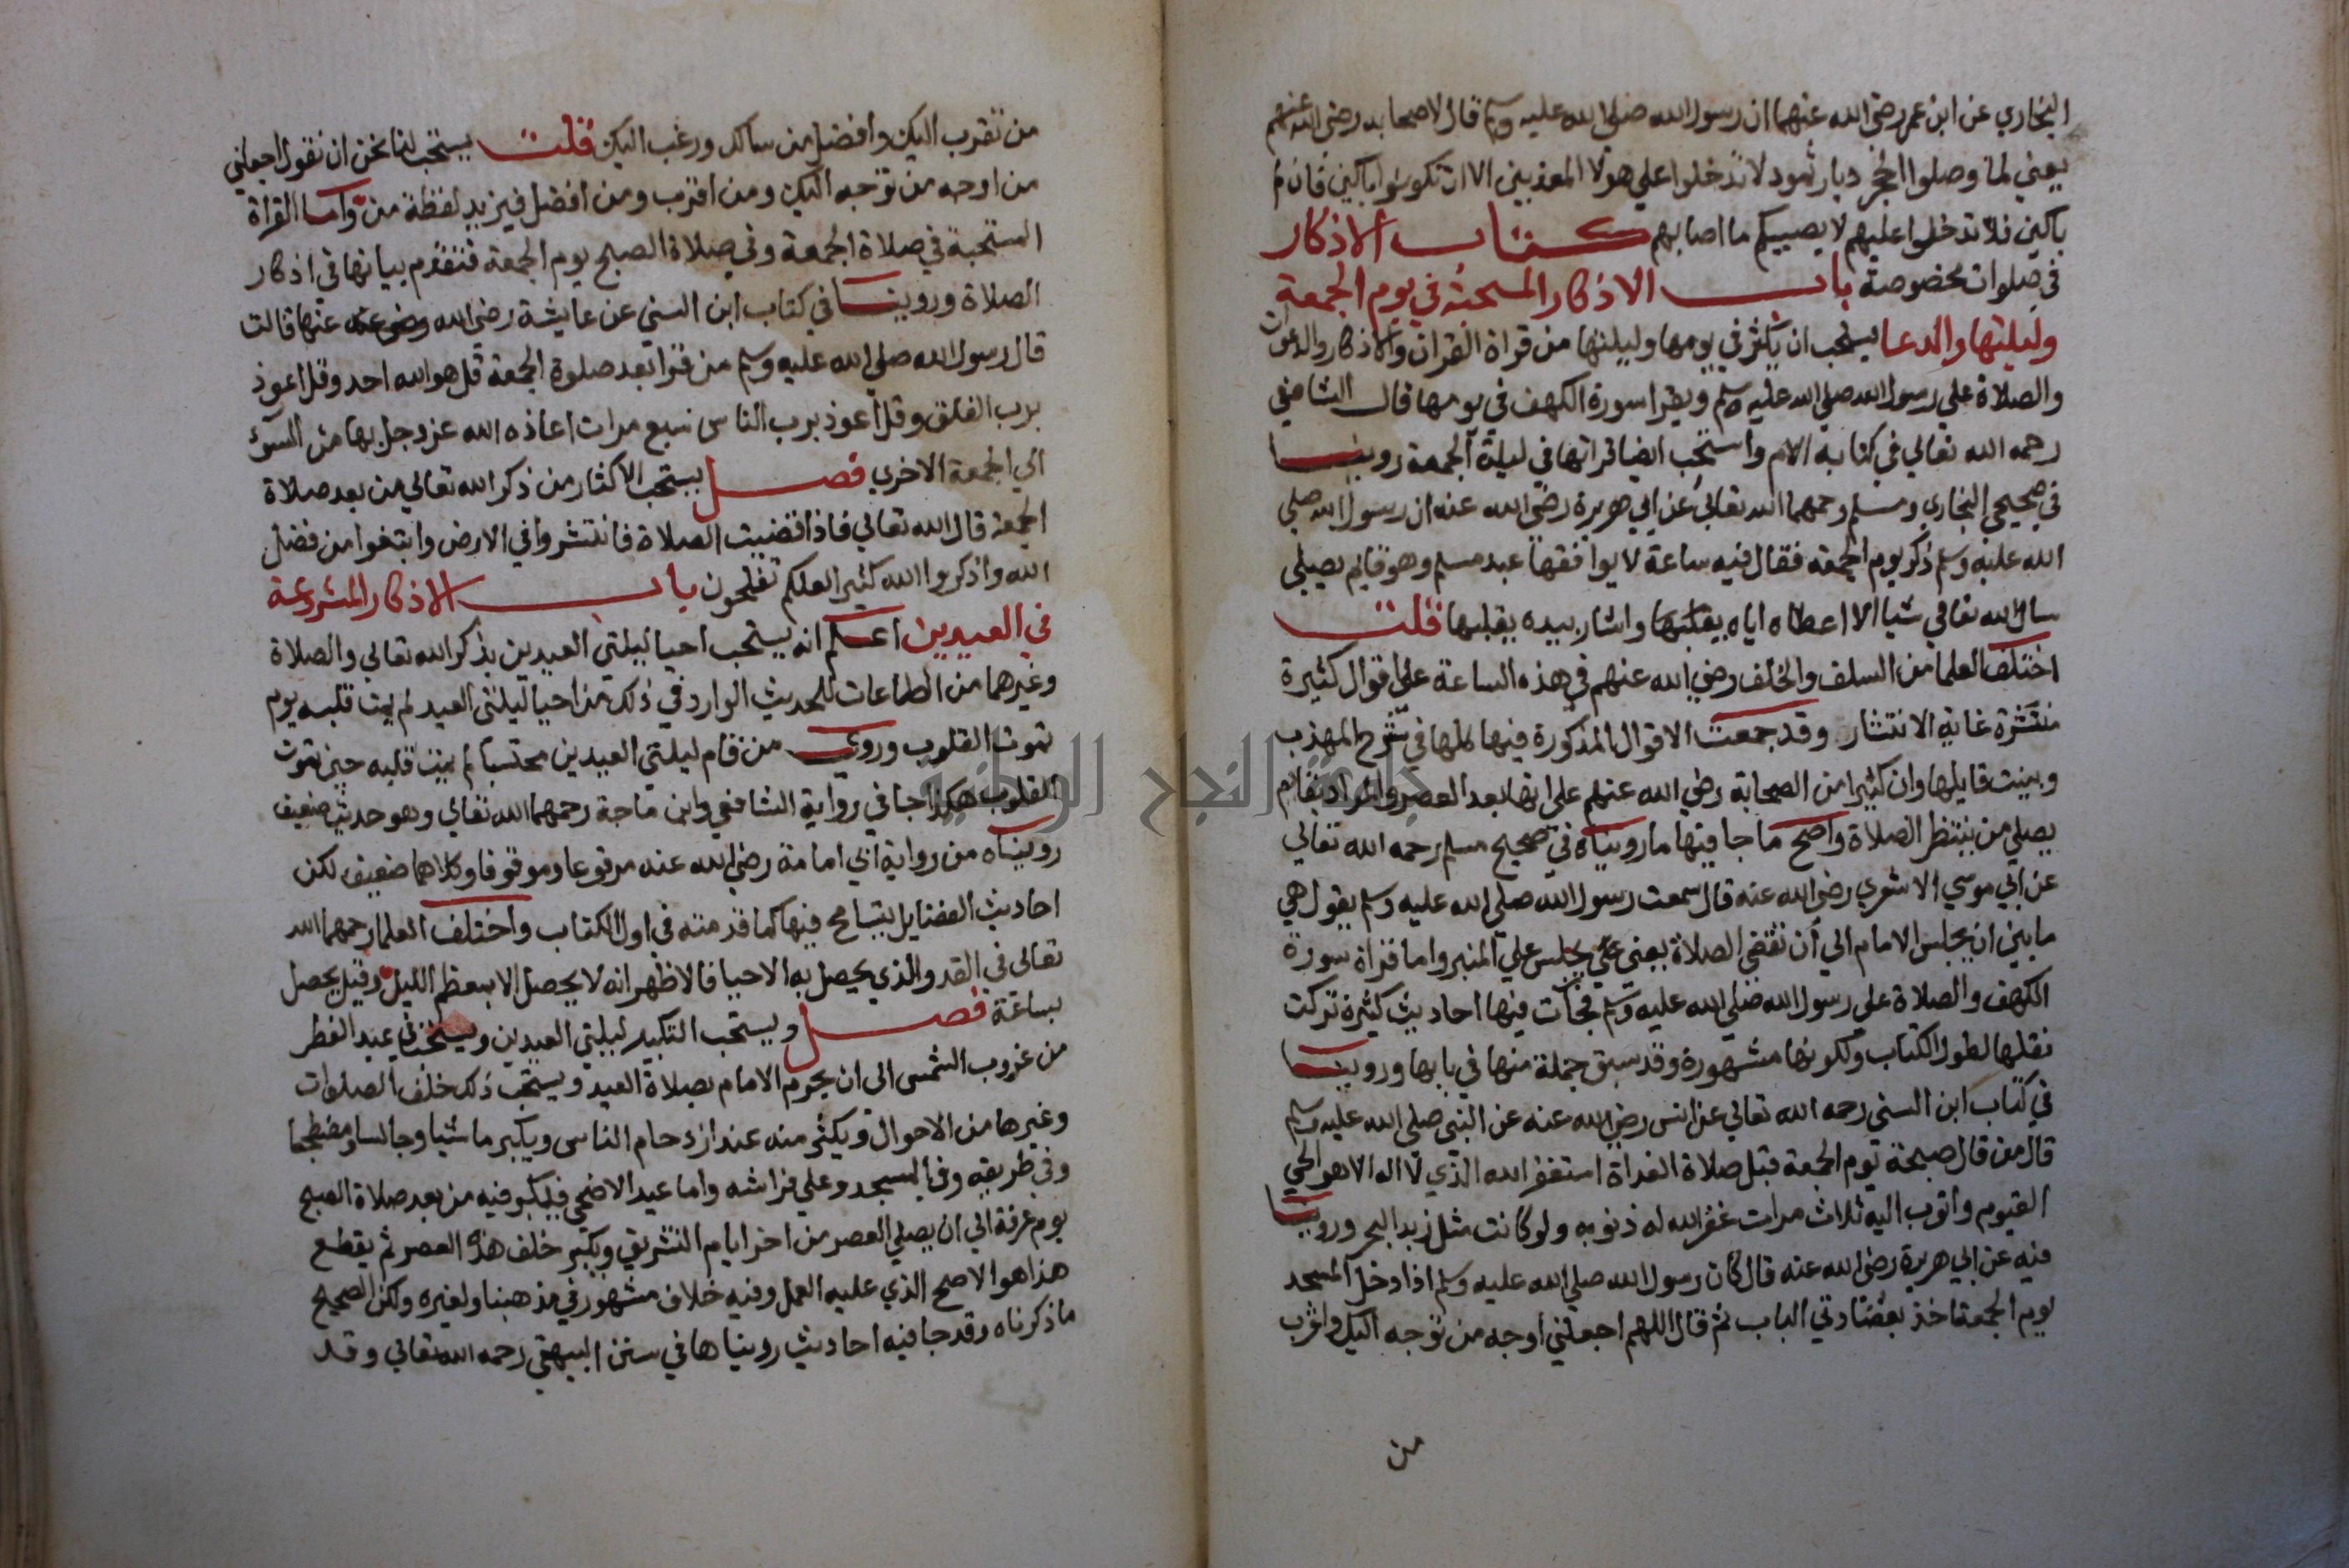 البخاري عن ابن عمر رضي الله عنهما ان رسول الله صلى الله عليه وسلم قال لاصحابه رضي الله عنهم
يعني لما وصلوا الحجر ديار ثمود لا تدخلوا علي هولا المعذبين الا ان تكونوا باكين فان لم
باكين فلا تدخلوا عليهم لا يصيبكم ما اصابهم كتاب الاذكار
في صلوات مخصوصة باب الاذكار المستحبة في يوم الجمعة
وليلتها والدعا يستحب ان يكثر في يومها وليلتها من قراة القران والاذكار والدعوات
والصلاة علي رسول الله صلي الله عليه وسلم ويقرا سورة الكهف في يومها قال الشافعي
رحمه الله تعالي في كتابه الام واستحب ايضا قراتها في ليلة الجمعة روينا
في صحيحي البخاري ومسلم رحمهما الله تعالي عن ابي هريرة رضي الله عنه ان رسول الله صلي
الله عليه وسلم ذكر يوم الجمعة فقال فيه ساعة لا يوافقها عبد مسلم وهو قايم يصلي
سال الله تعالي شيا الا اعطاه اياه يقللها واشار بيده يقللها قلت
اختلف العلما من السلف والخلف رضي الله عنهم في هذه الساعة علي اقوال كثيرة
منتشرة غاية الانتشار وقد جمعت الاقوال المذكورة فيها كلها في شرح المهذب
وبينت قايلها وان كثيرا من الصحابة رضي الله عنهم علي انها بعد العصر والمراد بقايم
يصلي من ينتظر الصلاة واصح ما جا فيها ما رويناه في صحيح مسلم رحمه الله تعالي
عن ابي موسي الاشعري رضي الله عنه قال سمعت رسول الله صلي الله عليه وسلم يقول هي
ما بين ان يجلس الامام الي أن تقضي الصلاة يعني يجلس علي المنبر واما قراة سورة
الكهف والصلاة علي رسول الله صلي الله عليه وسلم فجات فيها احاديث كثيرة تركت
نقلها لطول الكتاب ولكونها مشهورة وقد سبق جملة منها في بابها وروينا
في كتاب ابن السني رحمه الله تعالي عن انس رضي الله عنه عن النبي صلي الله عليه وسلم
قال من قال صبيحة يوم الجمعة قبل صلاة الغداة استغفر الله الذي لا اله الا هو الحي
القيوم واتوب اليه ثلاث مرات غفر الله له ذنوبه ولو كانت مثل زبد البحر وروينا
فيه عن ابي هريرة رضي الله عنه قال كان رسول الله صلي الله عليه وسلم اذا دخل المسجد
يوم الجمعة اخذ بعضادتي الباب ثم قال اللهم اجعلني اوجه من توجه اليك واقرب
من
من تقرب اليك وافضل من سالك ورغب اليك قلت يستحب لنا نحن ان نقول اجعلني
من اوجه من توجه اليك ومن اقرب ومن افضل فيزيد لفظة من واما القراة
المستحبة في صلاة الجمعة وفي صلاة الصبح يوم الجمعة فتقدم بيانها في اذكار
الصلاة وروينا في كتاب ابن السني عن عايشة رضي الله عنها قالت
قال رسول الله صلي الله عليه وسلم من قرا بعد صلوة الجمعة قل هو الله احد وقل اعوذ
برب الفلق وقل اعوذ برب الناس سبع مرات اعاذه الله عز وجل بها من السوء
الي الجمعة الاخري فصل يستحب الاكثار من ذكر الله تعالي من بعد صلاة
الجمعة قال الله تعالي فاذا قضيت الصلاة فانتشروا في الارض وابتغوا من فضل
الله واذكروا الله كثيرا لعلكم تفلحون باب الاذكار المشروعة
في العيدين اعلم انه يستحب احيا ليلتي العيدين بذكر الله تعالي والصلاة
وغيرهما من الطاعات للحديث الوارد في ذلك من احيا ليلتي العيد لم يمت قلبه يوم
تموت القلوب وروي من قام ليلتي العيدين محتسبا لم يمت قلبه حين تموت
القلوب هكذا جا في رواية الشافعي وابن ماجة رحمهما الله تعالي وهو حديث ضعيف
رويناه من رواية ابي امامة رضي الله عنه مرفوعا وموقوفا وكلاهما ضعيف لكن
احاديث الفضايل يتسامح فيها كما قدمته في اول الكتاب واختلف العلما رحمهما الله
تعالي في القدر الذي يحصل به الاحيا فالاظهر انه لا يحصل الا بمعظم الليل وقيل يحصل
بساعة فصل ويستحب التكبير ليلتي العيدين ويستحب في عيد الفطر
من غروب الشمس الي ان يحرم الامام بصلاة العيد ويستحب ذلك خلف الصلوات
وغيرها من الاحوال ويكثر منه عند ازدحام الناس ويكبر ماشيا وجالسا ومضطجعا
وفي طريقه وفي المسجد وعلي فراشه واما عيد الاضحي فيكبر فيه من بعد صلاة الصبح
يوم عرفة الي ان يصلي العصر من اخر ايام التشريق ويكبر خلف هذه العصر ثم يقطع
هذا هو الاصح الذي عليه العمل وفيه خلاف مشهور في مذهبنا ولغيره ولكن الصحيح
ما ذكرناه وقد جا فيه احاديث رويناها في سنن البيهقي رحمه الله تعالي وقد
جامعة النجاح الوطنية